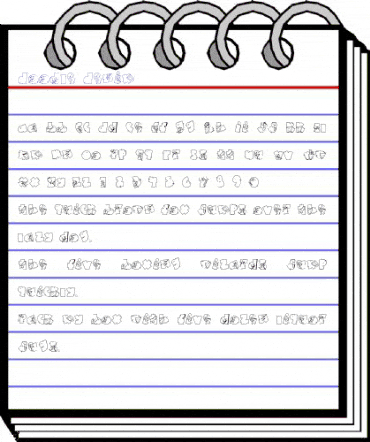 Aa Bb Cc Dd Ee Ff Gg Hh Ii Jj Kk Ll
Mm Nn Oo Pp Qq Rr Ss Tt Uu Vv Ww
Xx Yy Zz 1 2 3 4 5 6 7 8 9 0
The quick brown fox jumps over the
lazy dog.
The five boxing wizards jump
quickly.
Pack my box with five dozen liquor
jugs.